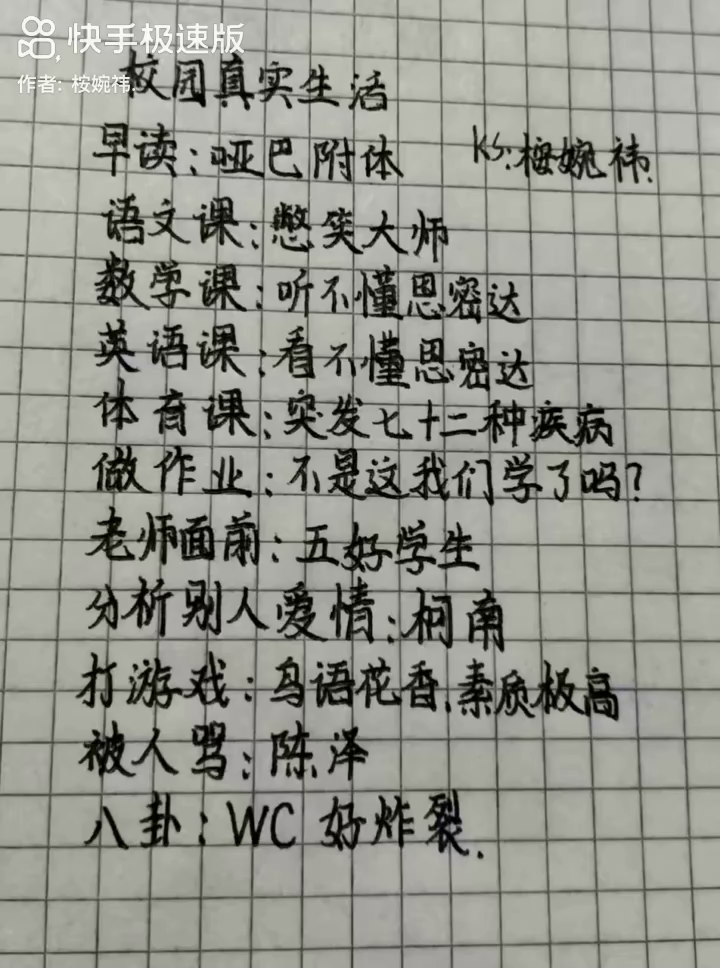 快手极速版
作者: 桉婉祎.
校园真实生活
早读:哑巴附体 KS:桉婉祎.
语文课:憋笑大师
数学课:听不懂思密达
英语课:看不懂思密达
体育课:突发七十二种疾病
做作业:不是这我们学了吗?
老师面前:五好学生
分析别人爱情:柯南
打游戏:鸟语花香.素质极高
被人骂:陈泽
八卦:WC 好炸裂.